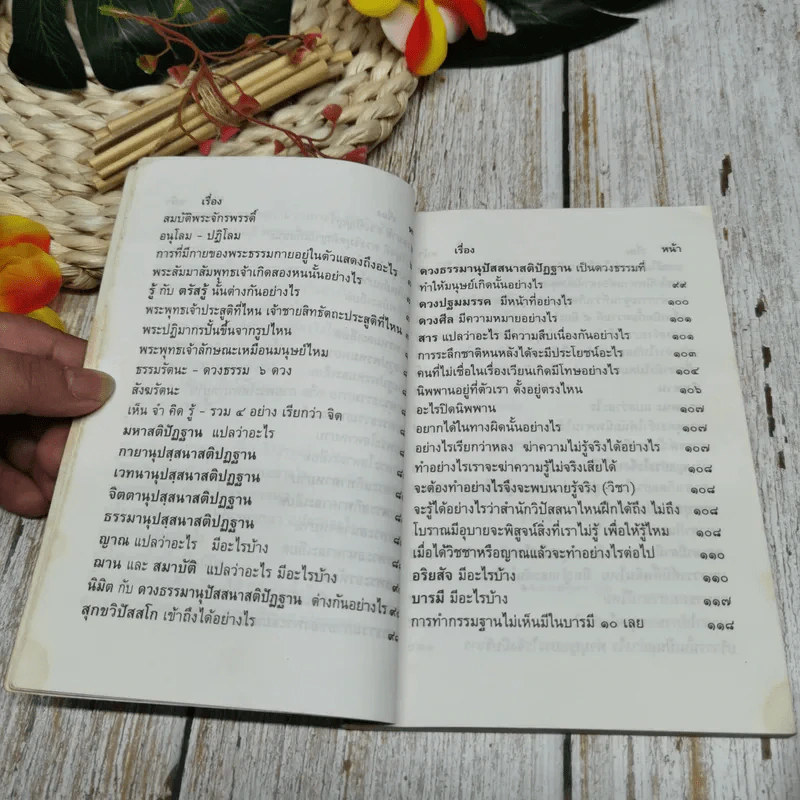 เรื่อง
สมบัติพระจักรพรรดิ์
อนุโลม - ปฏิโลม
การที่มีกายของพระธรรมกายอยู่ในตัวแสดงถึงอะไร
พระสัมมาสัมพุทธเจ้าเกิดสองหนนั้นอย่างไร
รู้ กับ ตรัสรู้ นั้นต่างกันอย่างไร
พระพุทธเจ้าประสูติที่ไหน เจ้าชายสิทธัตถะประสูติที่ไหน
พระปฏิมากรปั้นขึ้นจากรูปไหน
พระพุทธเจ้าลักษณะเหมือนมนุษย์ไหม
ธรรมรัตนะ - ดวงธรรม ๖ ดวง
สังฆรัตนะ
เห็น จำ คิด รู้ - รวม ๔ อย่าง เรียกว่า จิต
มหาสติปัฏฐาน แปลว่าอะไร
กายานุปัสฺสนาสติปัฏฐาน
เวทนานุปัสฺสนาสติปัฏฐาน
จิตตานุปัสฺสนาสติปัฏฐาน
ธรรมานุปัสฺสนาสติปัฏฐาน
ญาณ แปลว่าอะไร มีอะไรบ้าง
ฌาน และ สมาบัติ แปลว่าอะไร มีอะไรบ้าง
นิมิต กับ ดวงธรรมานุปัสสนาสติปัฏฐาน ต่างกันอย่างไร
สุกขวิปัสสโก เข้าถึงได้อย่างไร
เรื่อง หน้า
ดวงธรรมานุปัสสนาสติปัฏฐาน เป็นดวงธรรมที่
ทำให้มนุษย์เกิดนั้นอย่างไร ๙๙
ดวงปฐมมรรค มีหน้าที่อย่างไร ๑๐๐
ดวงศีล มีความหมายอย่างไร ๑๐๑
สาร แปลว่าอะไร มีความสืบเนื่องกันอย่างไร ๑๐๑
การระลึกชาติหนหลังได้จะมีประโยชน์อะไร ๑๐๓
คนที่ไม่เชื่อในเรื่องเวียนเกิดมีโทษอย่างไร ๑๐๔
นิพพานอยู่ที่ตัวเรา ตั้งอยู่ตรงไหน ๑๐๖
อะไรปิดนิพพาน ๑๐๗
อยากได้ในทางผิดนั้นอย่างไร ๑๐๗
อย่างไรเรียกว่าหลง ฆ่าความไม่รู้จริงได้อย่างไร ๑๐๗
ทำอย่างไรเราจะฆ่าความรู้ไม่จริงเสียได้ ๑๐๘
จะต้องทำอย่างไรจึงจะพบนายรู้จริง (วิชา) ๑๐๘
จะรู้ได้อย่างไรว่าสำนักวิปัสสนาไหนฝึกได้ถึง ไม่ถึง ๑๐๘
โบราณมีอุบายจะพิสูจน์สิ่งที่เราไม่รู้ เพื่อให้รู้ไหม ๑๐๘
เมื่อได้วิชชาหรือญาณแล้วจะทำอย่างไรต่อไป ๑๑๐
อริยสัจ มีอะไรบ้าง ๑๑๐
บารมี มีอะไรบ้าง ๑๑๗
การทำกรรมฐานไม่เห็นมีในบารมี ๑๐ เลย ๑๑๘